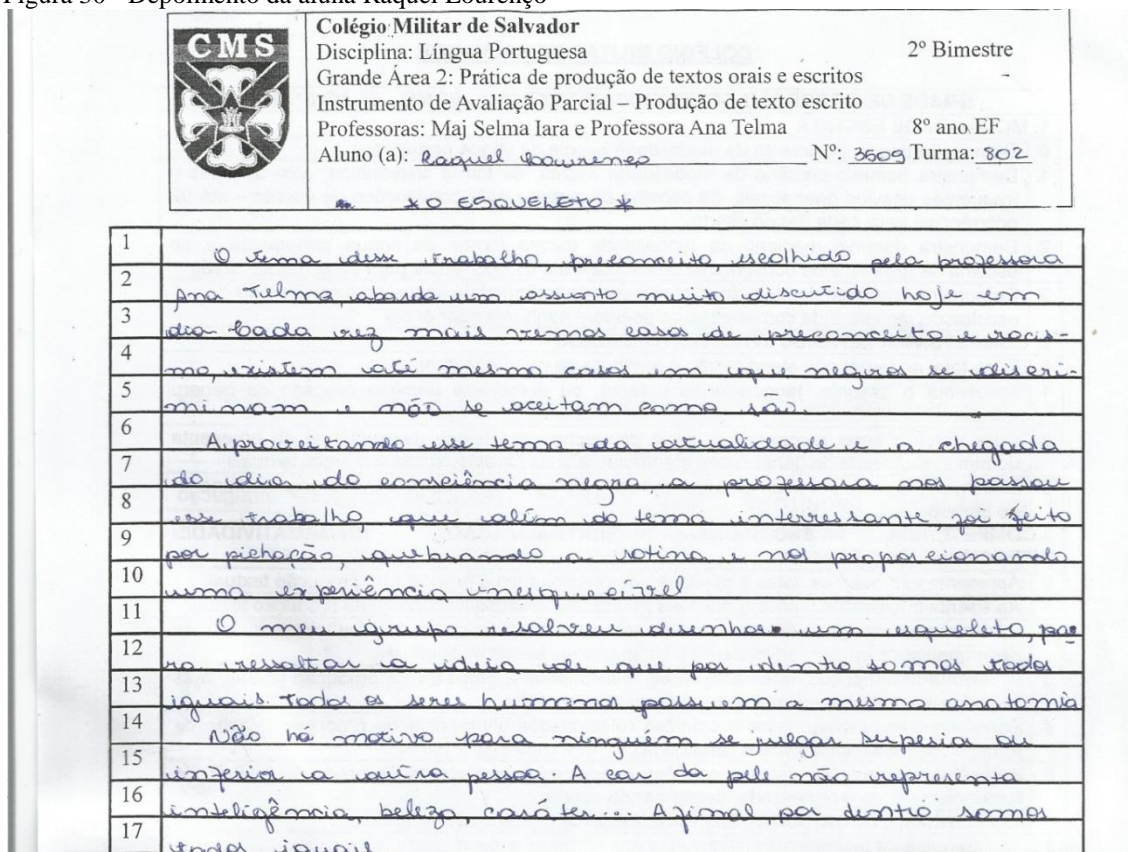 Figura 30 - Depoimento da aluna Raquel Lourenço
CMS
Colégio Militar de Salvador
Disciplina: Língua Portuguesa 2º Bimestre
Grande Área 2: Prática de produção de textos orais e escritos
Instrumento de Avaliação Parcial – Produção de texto escrito
Professoras: Maj Selma Iara e Professora Ana Telma 8º ano EF
Aluno (a): Raquel Lourenço Nº: 3609 Turma: 802
* O ESQUELETO *
1 O tema desse trabalho, preconceito, escolhido pela professora
2 Ana Telma, aborda um assunto muito discutido hoje em
3 dia. Cada vez mais vemos casos de preconceito e racis-
4 mo, existem até mesmo casos em que negros se discri-
5 minam e não se aceitam como são.
6 Aproveitando esse tema da atualidade e a chegada
7 do dia do consciência negra a professora nos passou
8 esse trabalho, que além do tema interessante, foi feito
9 por pichação, quebrando a rotina e nos proporcionando
10 uma experiência inesquecível
11 O meu grupo resolveu desenhar um esqueleto, pa
12 ra ressaltar a ideia de que por dentro somos todos
13 iguais. Todos os seres humanos possuem a mesma anatomia
14 Não há motivo para ninguém se julgar superior ou
15 inferior a outra pessoa. A cor da pele não representa
16 inteligência, beleza, caráter... Afinal, por dentro somos
17 todos iguais